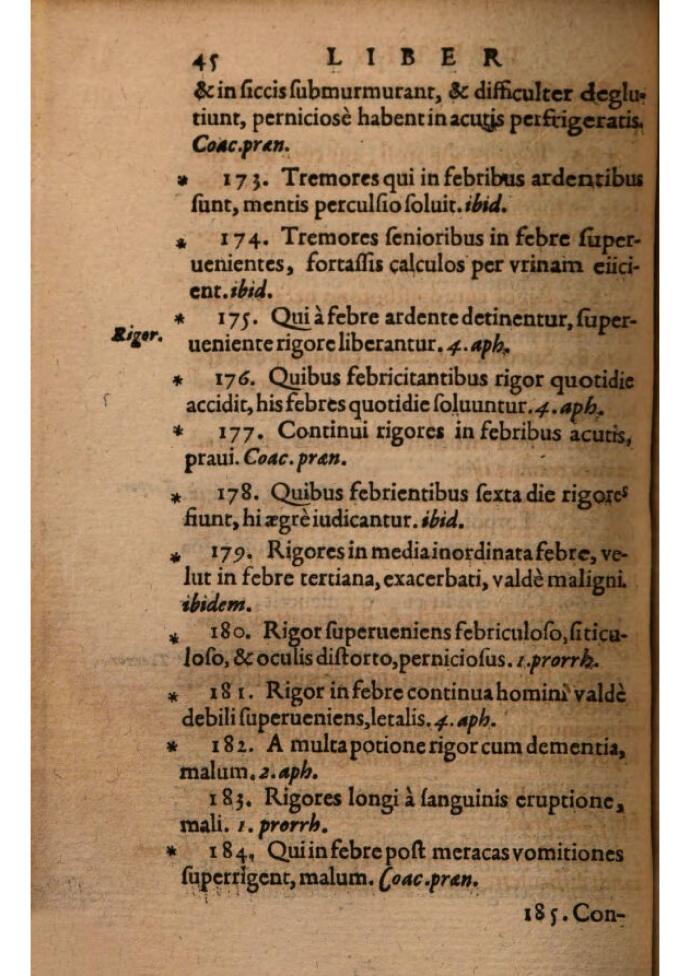 45 LIBER
& in ſiccis ſubmurmurant, & difficulter deglu-
tiunt, pernicioſè habent in acutis perfrigeratis.
Coac.præn.
* 173. Tremores qui in febribus ardentibus
ſunt, mentis perculſio ſoluit. ibid.
* 174. Tremores ſenioribus in febre ſuper-
uenientes, fortaſſis calculos per vrinam eiici-
ent. ibid.
* 175. Qui à febre ardente detinentur, ſuper-
Rigor. ueniente rigore liberantur. 4. aph.
* 176. Quibus febricitantibus rigor quotidie
accidit, his febres quotidie ſoluuntur. 4. aph.
* 177. Continui rigores in febribus acutis,
praui. Coac. præn.
* 178. Quibus febrientibus ſexta die rigores
fiunt, hi ægrè iudicantur. ibid.
* 179. Rigores in media inordinata febre, ve-
lut in febre tertiana, exacerbati, valdè maligni.
ibidem.
* 180. Rigor ſuperueniens febriculoſo, ſiticu-
loſo, & oculis diſtorto, pernicioſus. 1. prorrh.
* 181. Rigor in febre continua homini valdè
debili ſuperueniens, letalis. 4. aph.
* 182. A multa potione rigor cum dementia,
malum. 2. aph.
183. Rigores longi à ſanguinis eruptione,
mali. 1. prorrh.
* 184. Qui in febre poſt meracas vomitiones
ſuperrigent, malum. Coac. præn.
185. Con-